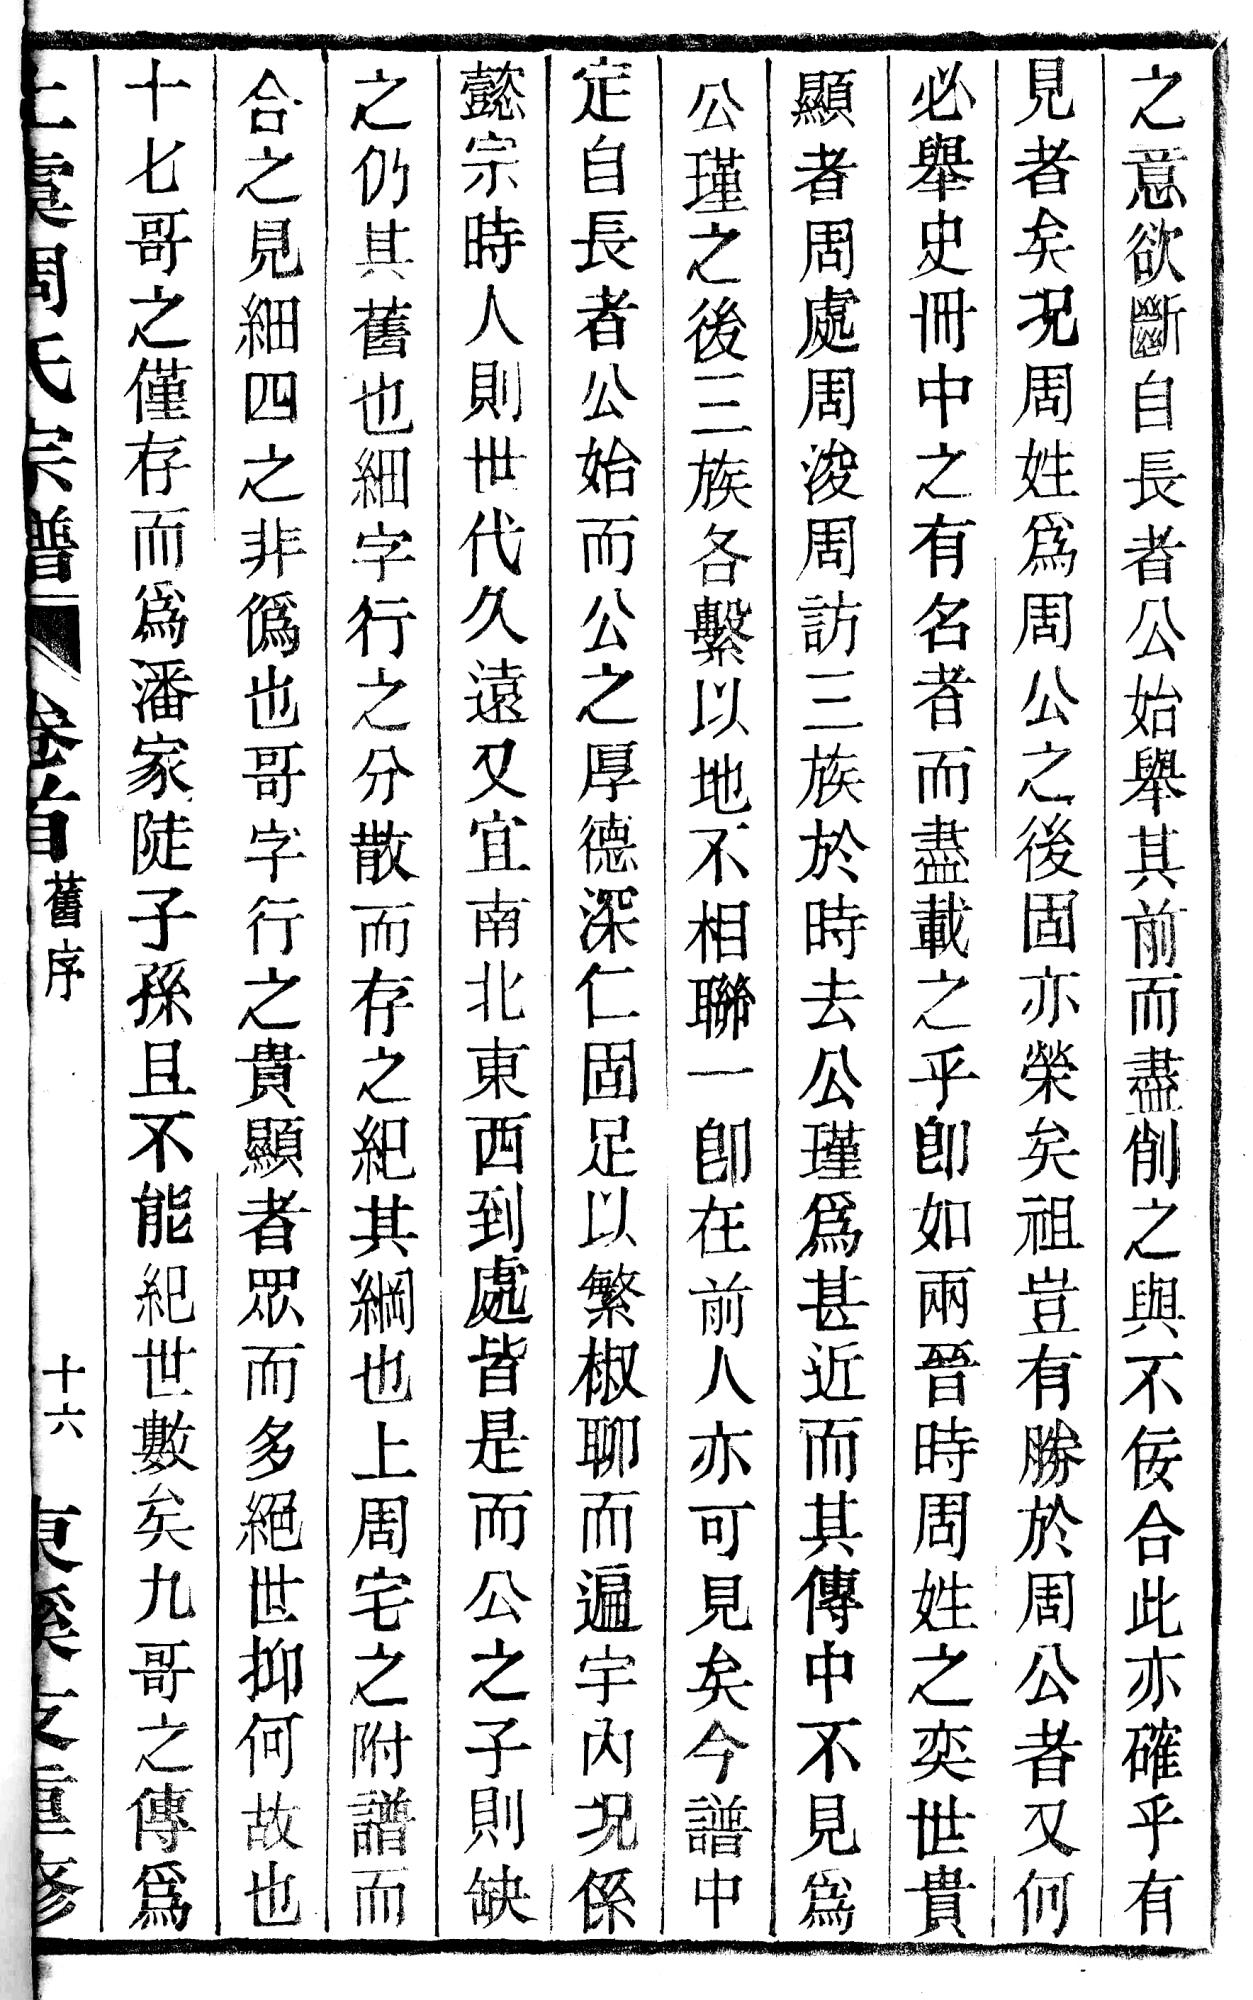 之意欲斷自長者公始舉其前而盡削之與不佞合此亦確乎有
見者矣况周姓爲周公之後固亦榮矣祖豈有勝於周公者又何
必舉史冊中之有名者而盡載之乎卽如兩晉時周姓之奕世貴
顯者周處周浚周訪三族於時去公瑾爲甚近而其傳中不見爲
公瑾之後三族各繫以地不相聯一卽在前人亦可見矣今譜中
定自長者公始而公之厚德深仁固足以繁椒聊而遍宇內况係
懿宗時人則世代久遠又宜南北東西到處皆是而公之子則缺
之仍其舊也細字行之分散而存之紀其綱也上周宅之附譜而
合之見細四之非僞也哥字行之貴顯者眾而多絕世抑何故也
十七哥之僅存而爲潘家陡子孫且不能紀世數矣九哥之傳爲
上虞周氏宗譜 卷首 舊序 十六 東溪支重修